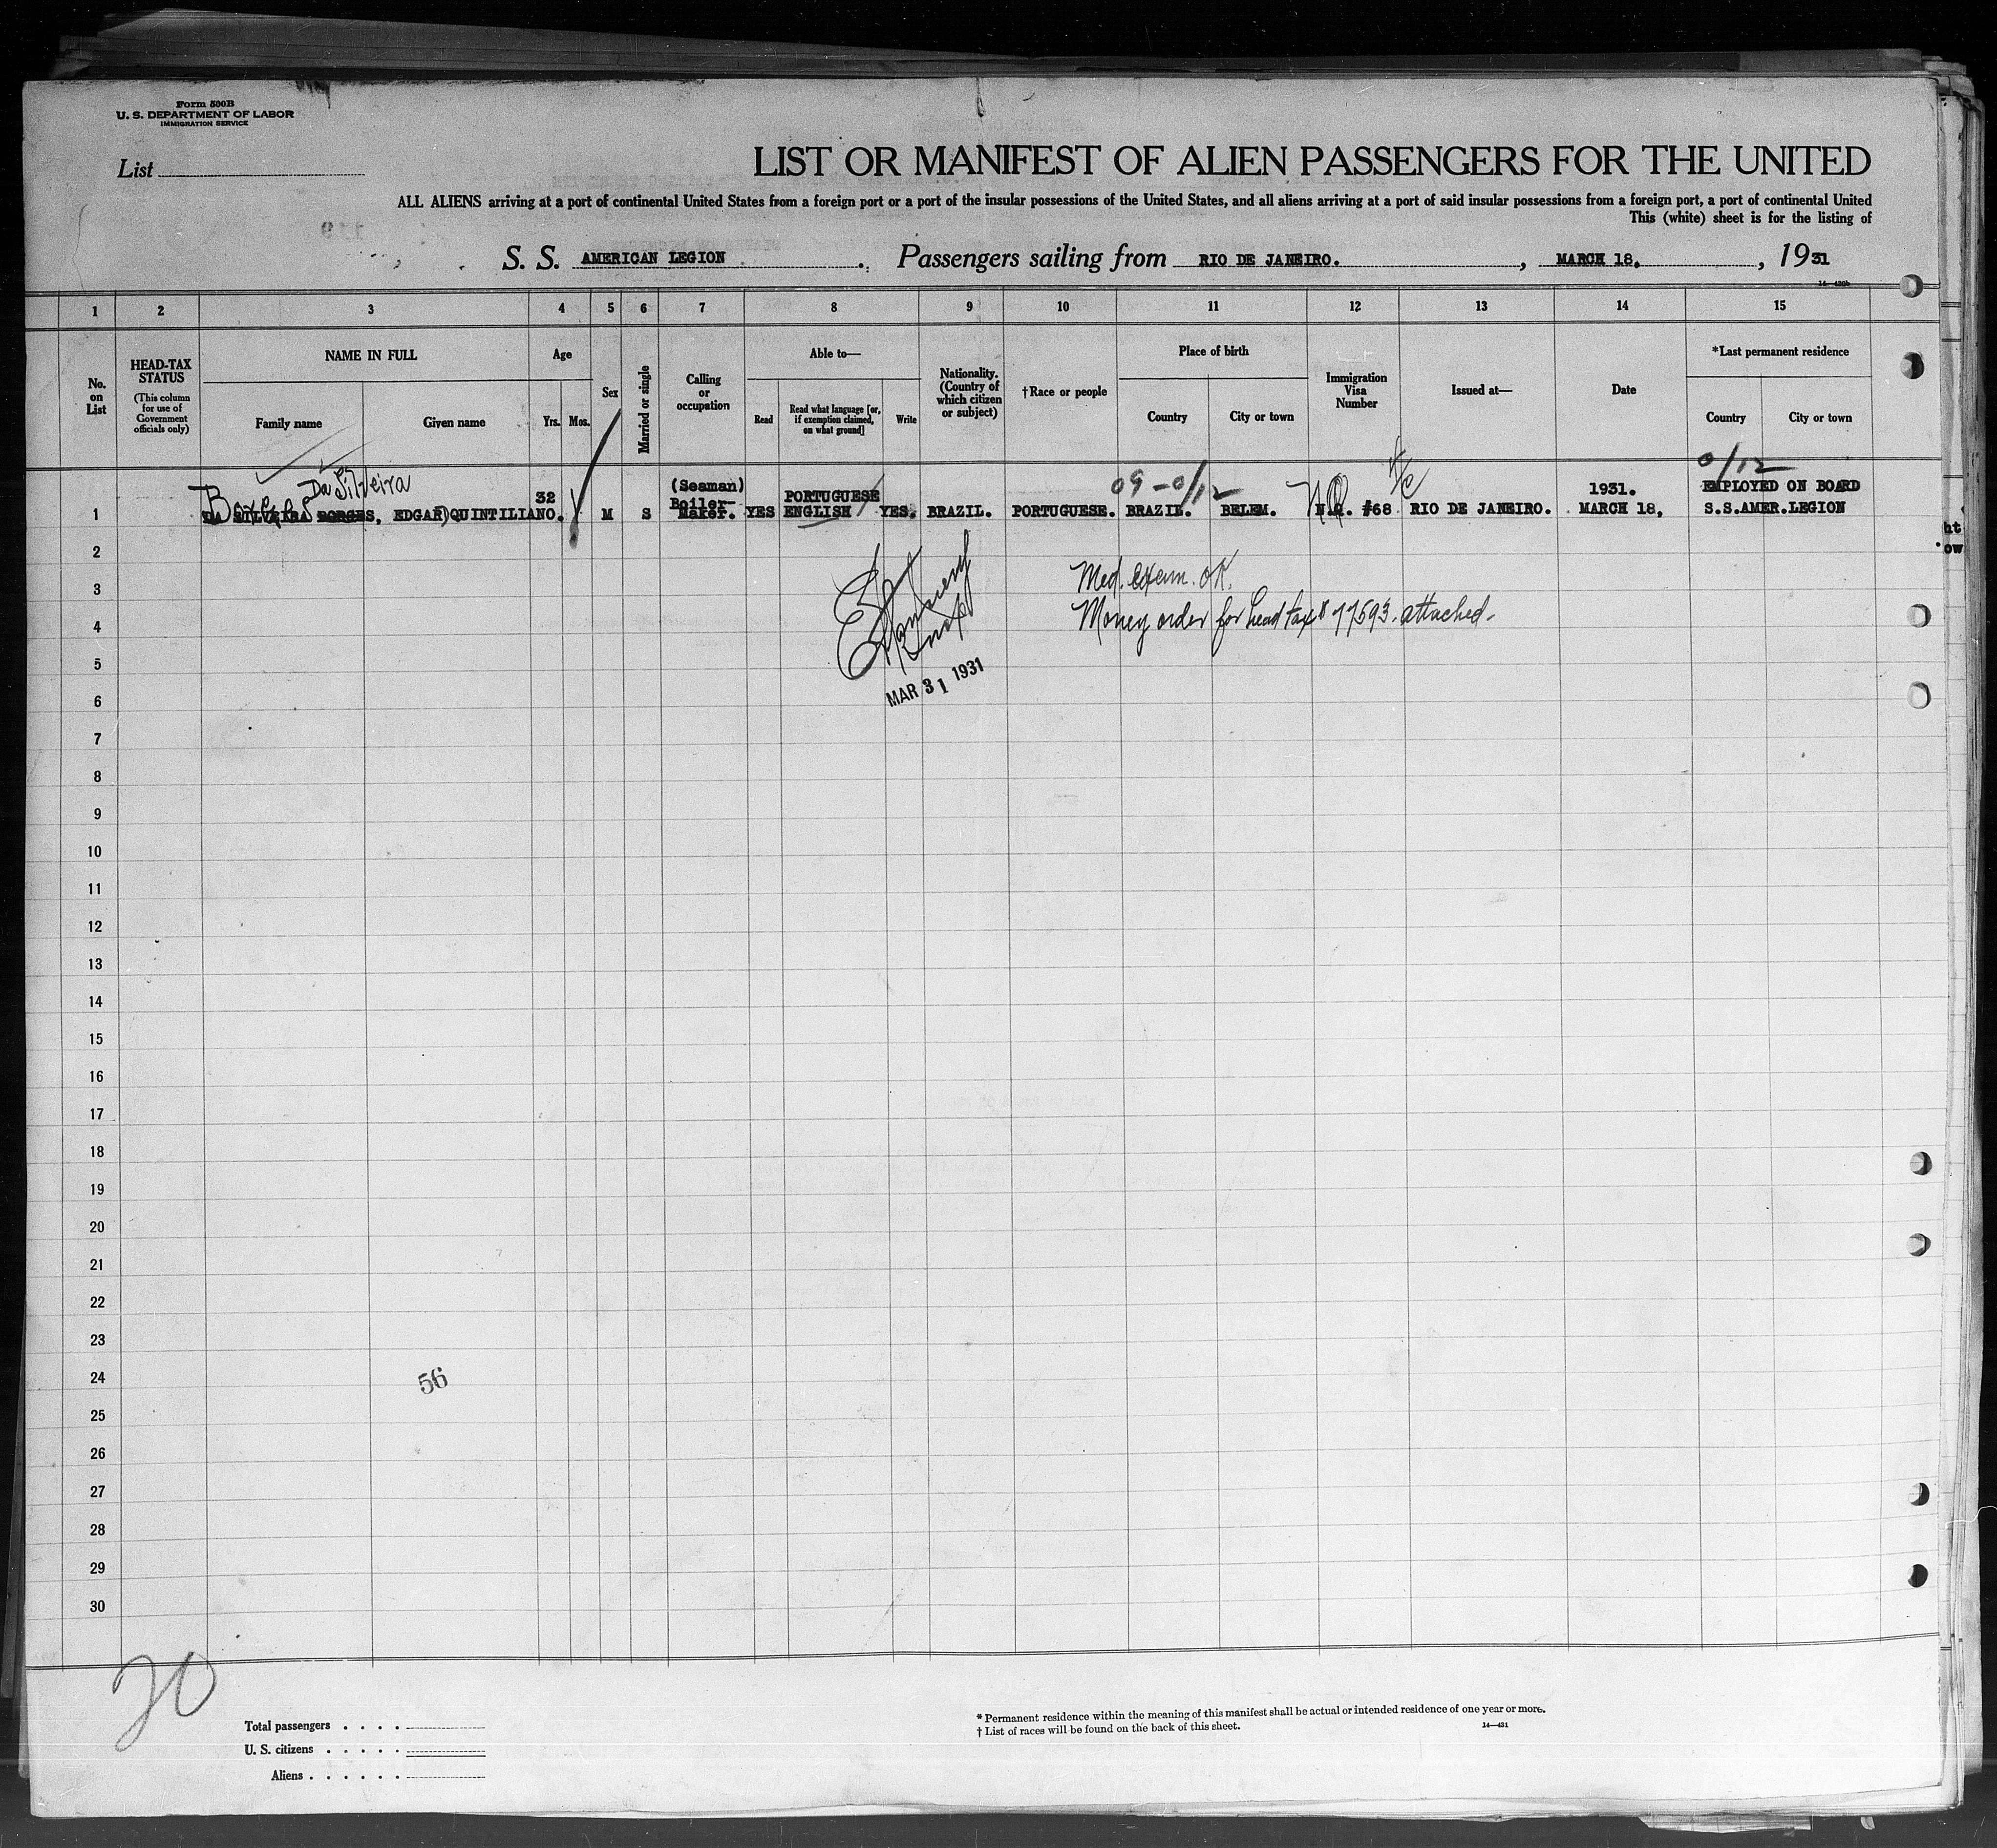 Form 500B
U. S. DEPARTMENT OF LABOR
IMMIGRATION SERVICE
List
LIST OR MANIFEST OF ALIEN PASSENGERS FOR THE UNITED
ALL ALIENS arriving at a port of continental United States from a foreign port or a port of the insular possessions of the United States, and all aliens arriving at a port of said insular possessions from a foreign port, a port of continental United
This (white) sheet is for the listing of
S. S. AMERICAN LEGION. Passengers sailing from RIO DE JANEIRO. , MARCH 18. , 1931
1 2 3 4 5 6 7 8 9 10 11 12 13 14 15
No. on List
HEAD-TAX STATUS
(This column for use of Government officials only)
NAME IN FULL
Family name
Given name
Age
Yrs.
Mos.
Sex
Married or single
Calling or occupation
Able to—
Read
Read what language [or, if exemption claimed, on what ground]
Write
Nationality. (Country of which citizen or subject)
†Race or people
Place of birth
Country
City or town
Immigration Visa Number
Issued at—
Date
*Last permanent residence
Country
City or town
Borges Da Silveira
09-0/12
0/12
(Seaman)
32 Boiler- PORTUGUESE 1931. EMPLOYED ON BOARD
1 DA SILVEIRA BORGES, EDGAR QUINTILIANO. M S Maker. YES ENGLISH YES. BRAZIL. PORTUGUESE. BRAZIL. BELEM. N.Q. #68 RIO DE JANEIRO. MARCH 18, S.S.AMER.LEGION
2
3
4
5
6
7
8
9
10
11
12
13
14
15
16
17
18
19
20
21
22
23
24
25
26
27
28
29
30
Med. exam. OK.
Money order for head tax # 77593. attached.
MAR 31 1931
56
20
Total passengers
U. S. citizens
Aliens
* Permanent residence within the meaning of this manifest shall be actual or intended residence of one year or more.
† List of races will be found on the back of this sheet.
14—431
ht
ow